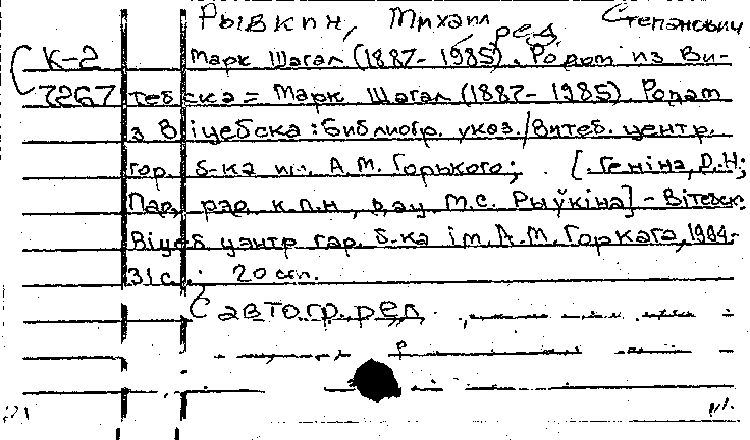 Рывкин, Михаил Степанович
ред
К-2 Марк Шагал (1887-1985). Родом из Ви-
7267 тебска = Марк Шагал (1887-1985). Родам
з Віцебска: Библиогр. указ./Витеб. центр.
гор. б-ка им. А.М. Горького; [. Геніна, Д.Н;
Пад рэд. к.п.н, М.С. Рыўкіна] - Вітебск:
Віцеб цэнтр гар. б-ка ім. А.М. Горкага, 1994.-
31 с.; 20 см.
С автогр. ред.